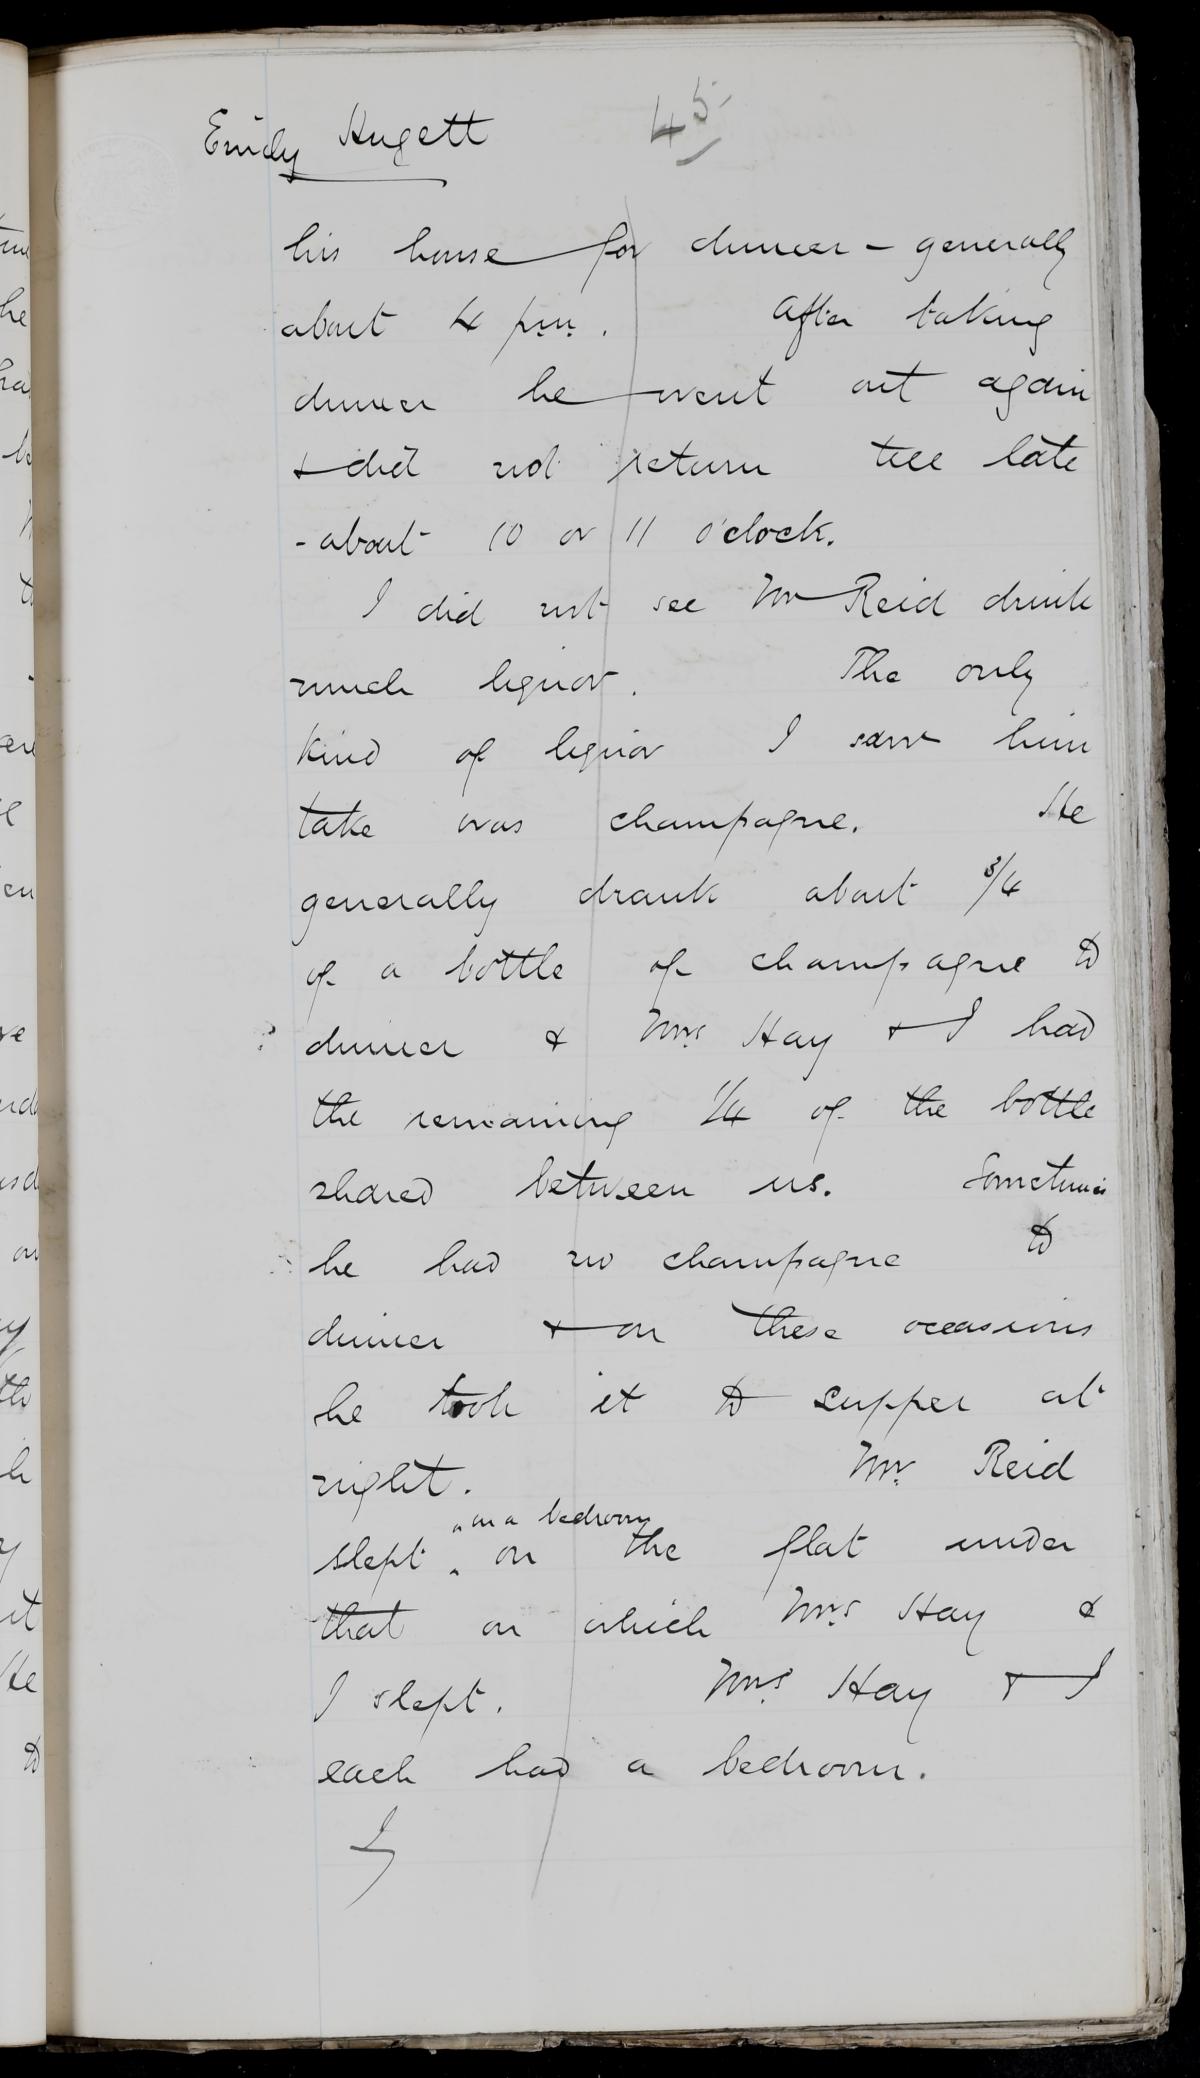 Emily Hugett 45
his house for dinner - generally
about 4 p.m. After taking
dinner he went out again
& did not return till late
- about 10 or 11 o'clock.
I did not see Mr Reid drink
much liquor. The only
kind of liquor I saw him
take was champagne. He
generally drank about 3/4
of a bottle of champagne to
dinner & Mrs Hay & I had
the remaining 1/4 of the bottle
shared between us. Sometimes
he had no champagne to
dinner & on these occasions
he took it to supper at
night. Mr. Reid
in a bedroom
slept ^ on the flat under
that on which Mrs Hay &
I slept. Mrs Hay & I
each had a bedroom.
I